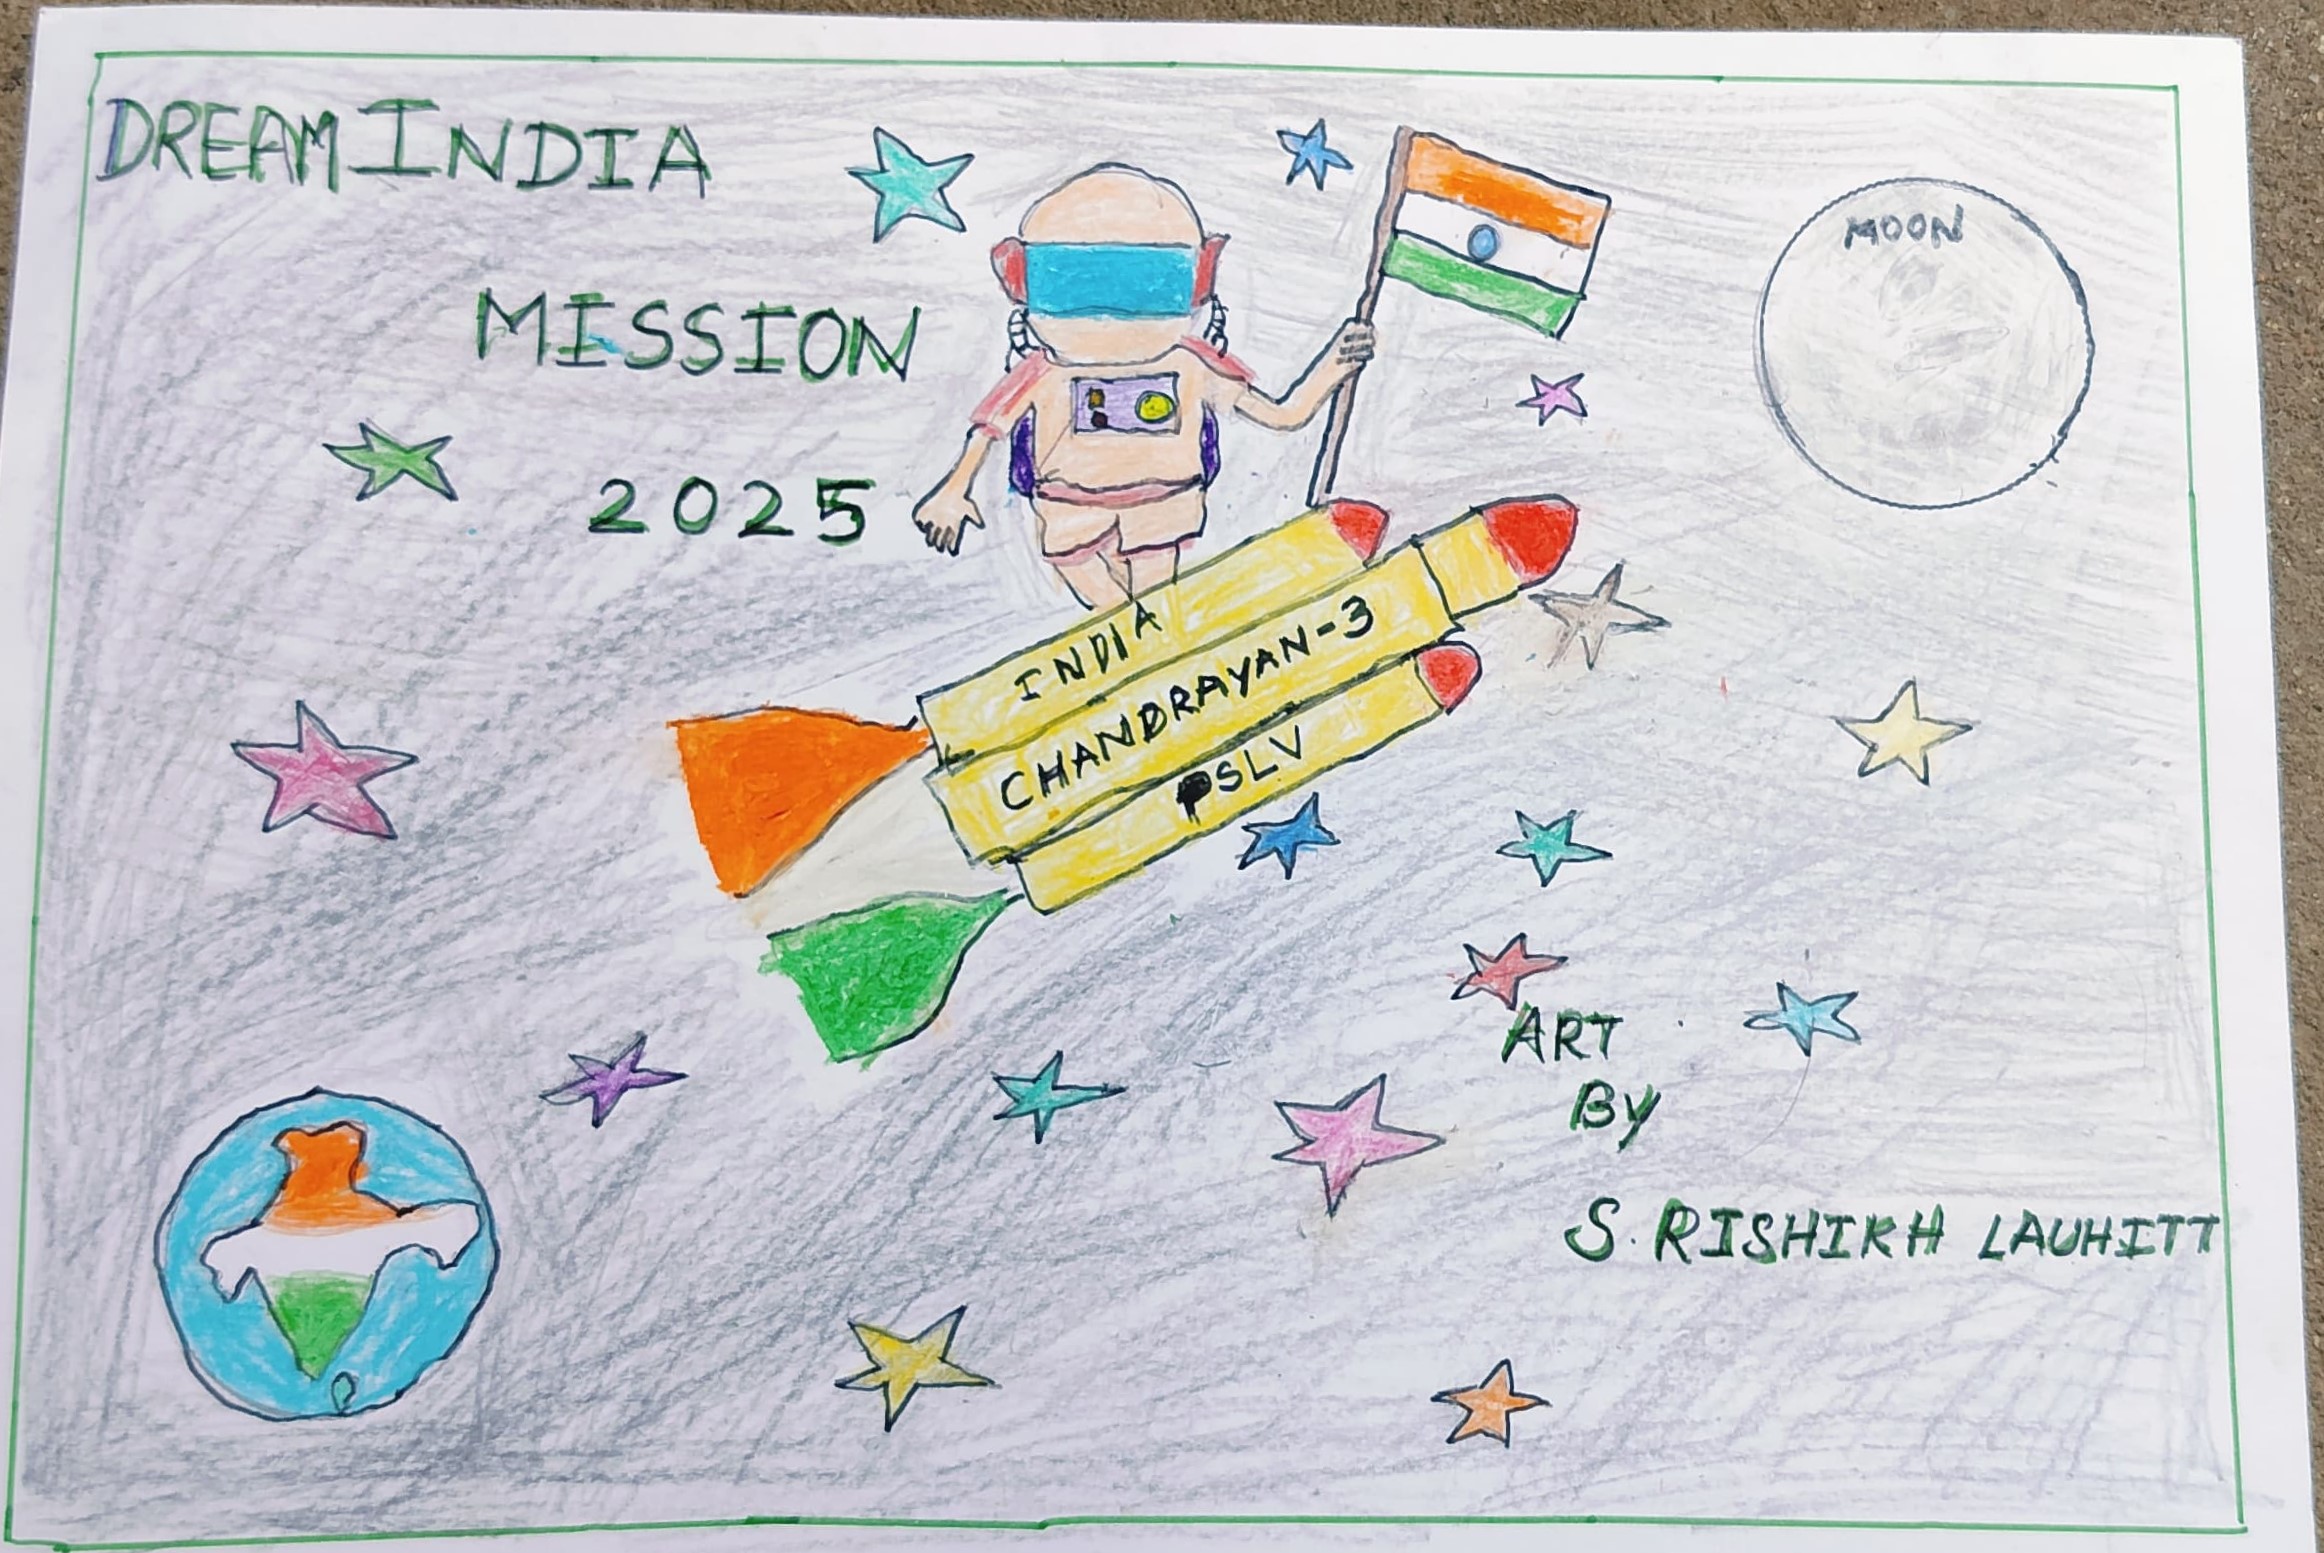 DREAM INDIA
MISSION
2025
MOON
INDIA
CHANDRAYAN-3
PSLV
ART
By
S. RISHIKH LAUHITT